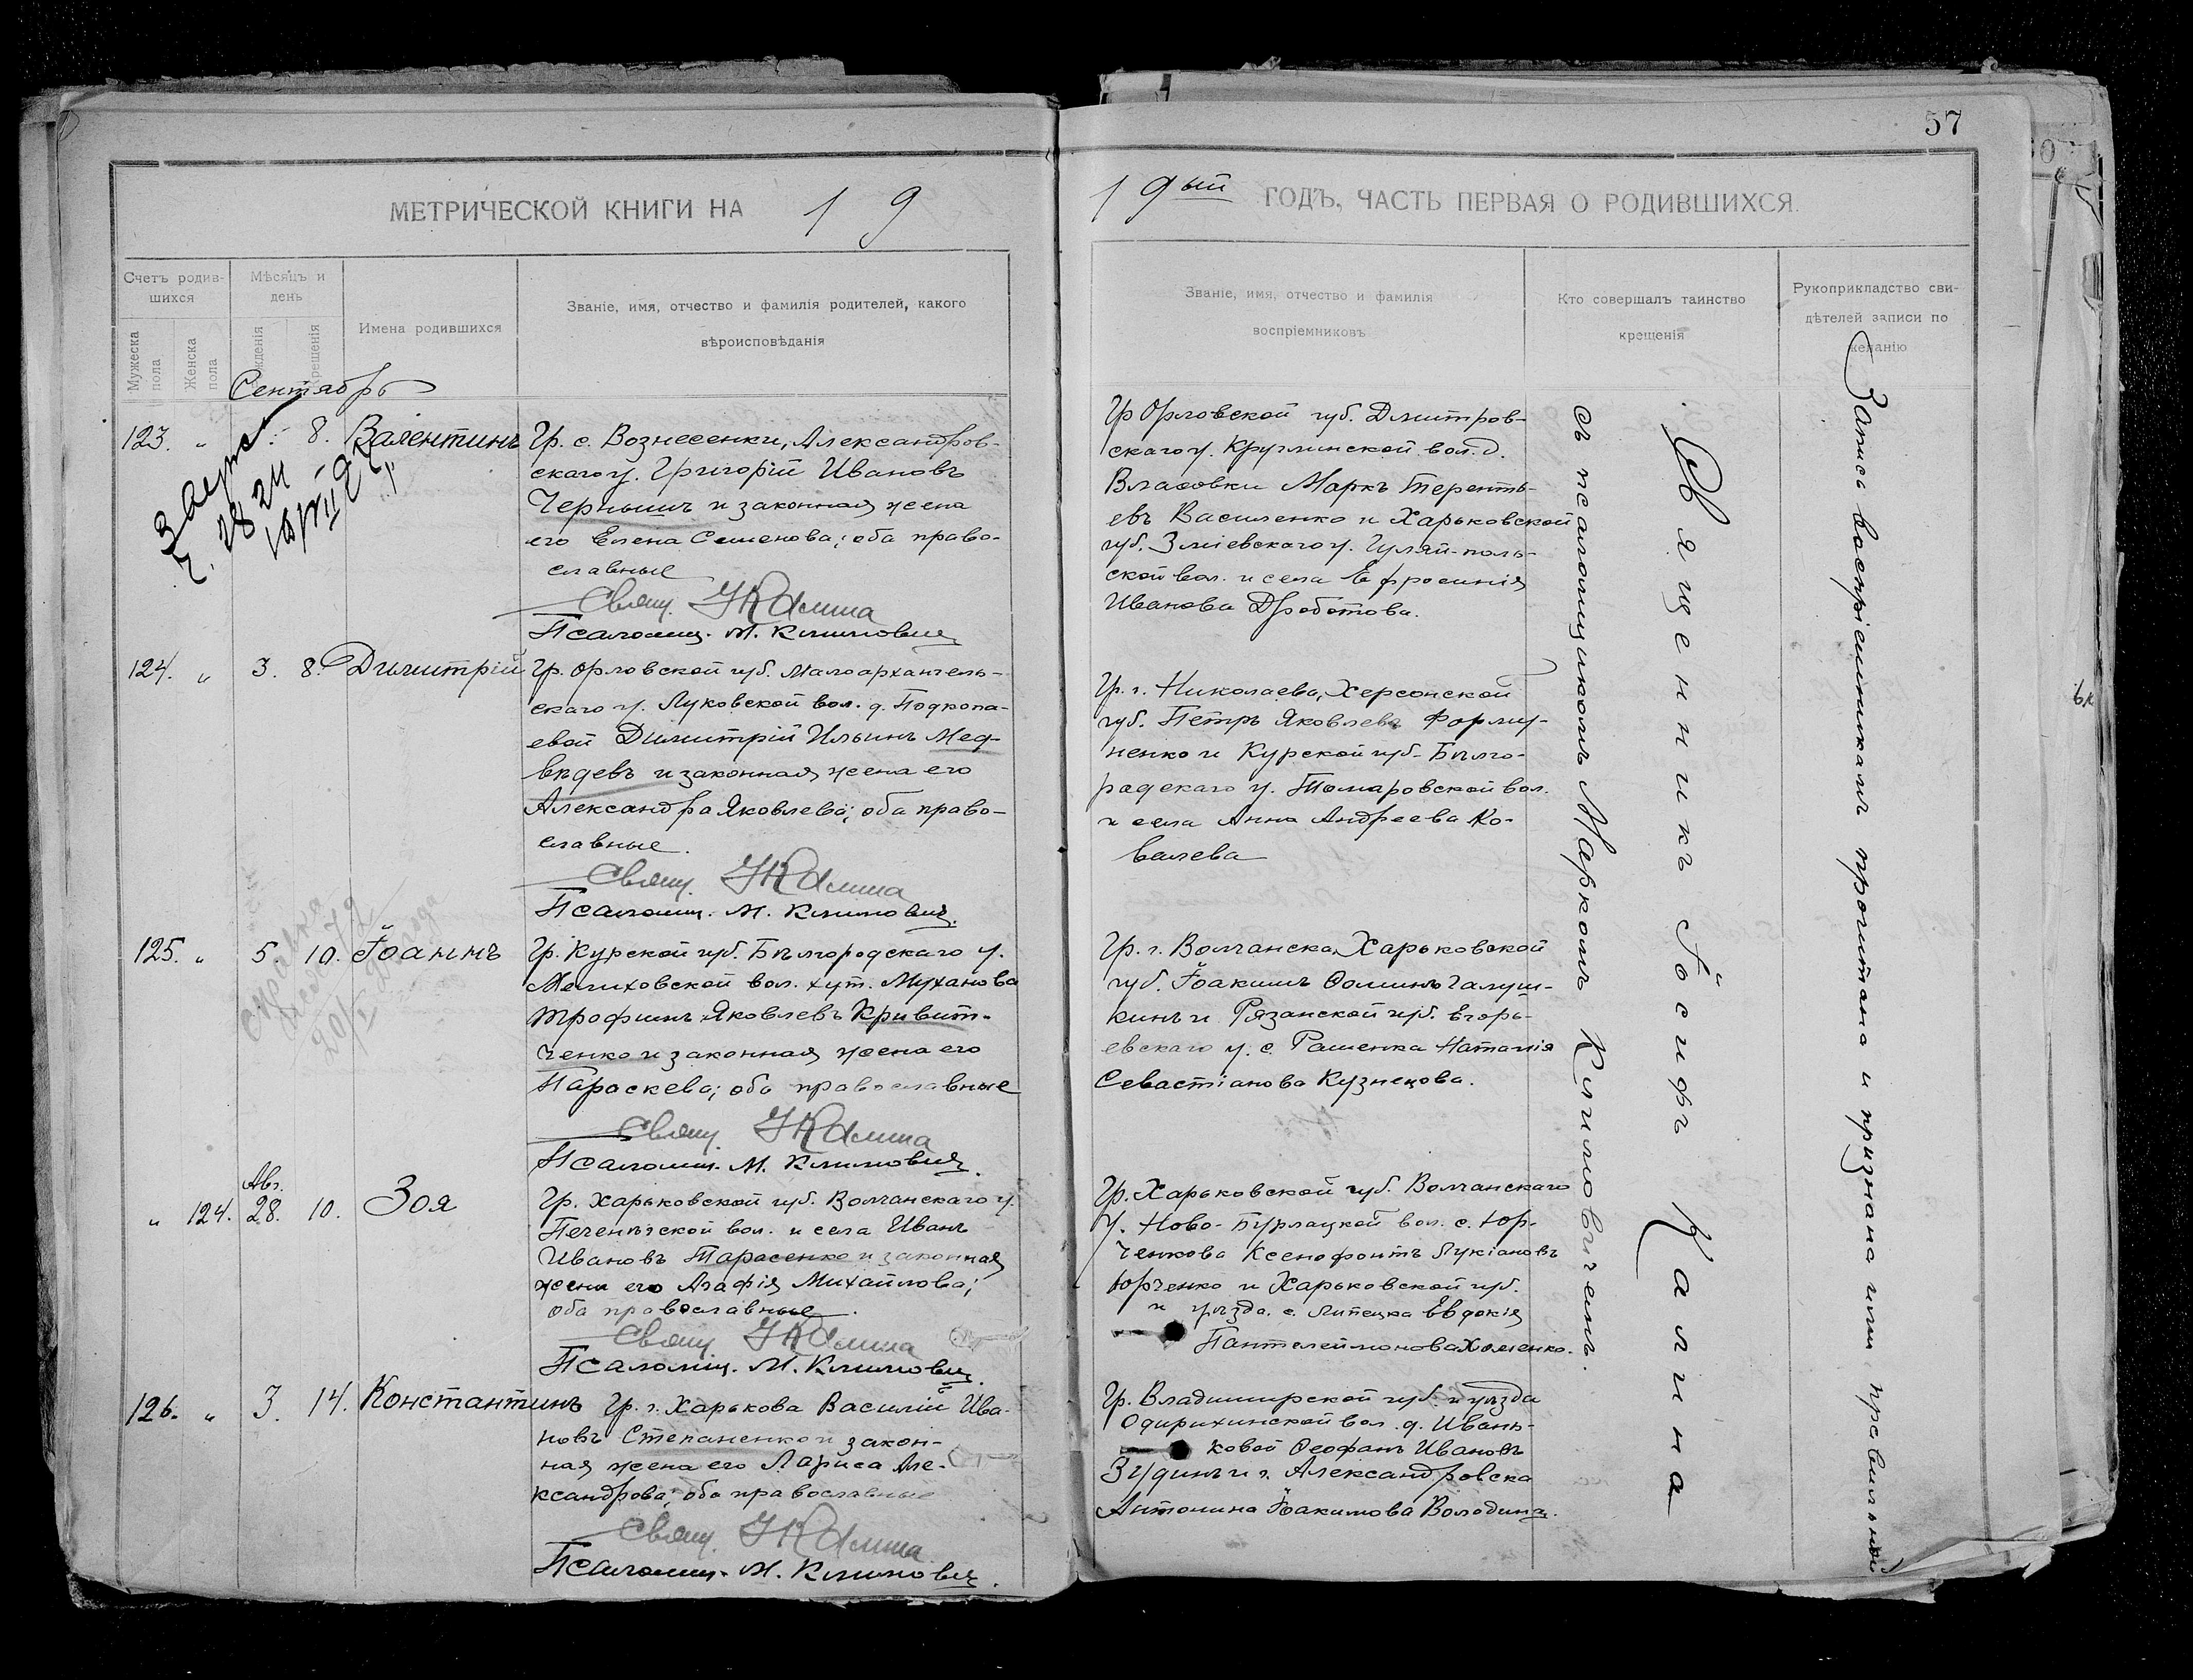 57
МЕТРИЧЕСКОЙ КНИГИ НА 1 9
1 9ый ГОДЪ, ЧАСТЬ ПЕРВАЯ О РОДИВШИХСЯ.
Счетъ родив-
шихся
Мужеска пола
Женска пола
Мѣсяцъ и
день
рожденія
крещенія
Имена родившихся
Званіе, имя, отчество и фамилія родителей, какого
вѣроисповѣданія
Званіе, имя, отчество и фамилія
воспріемниковъ
Кто совершалъ таинство
крещенія
Рукоприкладство сви-
дѣтелей записи по
желанію
Сентябрь
123. " 8. Валентинъ
Гр. с. Вознесенки, Александров-
скаго у. Григорій Ивановъ
Чернышъ и законная жена
его Елена Семенова; оба право-
славные
Свящ. І Калина
Псаломщ. М. Климович
Гр Орловской губ. Дмитров-
скаго у. Круглинской вол. д.
Власовки Маркъ Теренть-
евъ Василенко и Харьковской
губ. Зміевскаго у. Гуляй-поль-
ской вол. и села Ефросинія
Иванова Дроботова.
124. " 3. 8. Димитрій
Гр. Орловской губ. Малоархангель-
скаго у. Луковской вол. д. Подкопа-
евой Димитрій Ильинъ Мед-
вѣдевъ и законная жена его
Александра Яковлева; оба право-
славные.
Свящ. І Калина
Псаломщ. М. Климович.
Гр. г. Николаева, Херсонской
губ. Петръ Яковлевъ Форму-
ненко и Курской губ. Бѣлго-
радскаго у. Томаровской вол.
и села Анна Андреева Ко-
валева
125. " 5. 10. Іоаннъ
Гр. Курской губ. Бѣлгородскаго у.
Мелиховской вол. хут. Муханова
Трофимъ Яковлевъ Кривит-
ченко и законная жена его
Параскева; оба православные
Свящ. І Калина
Псаломщ. М. Климович.
Гр. г. Волчанска, Харьковской
губ. Іоакимъ Ѳоминъ Галуш-
кинъ и Рязанской губ. Егорь-
евскаго у. с. Рашенка Наталія
Севастіанова Кузнецова.
" 124. Авг. 28. 10. Зоя
Гр. Харьковской губ. Волчанскаго у.
Печенѣгской вол. и села Иванъ
Ивановъ Тарасенко и законная
жена его Агафія Михайлова;
оба православные.
Свящ. І Калина
Псаломщ. М. Климович.
Гр. Харьковской губ. Волчанскаго
у. Ново-Бурлацкой вол. с. Юр-
ченкова Ксенофонтъ Лукіановъ
Юрченко и Харьковской губ.
и уѣзда. с. Липецка Евдокія
Пантелеймонова Хоменко.
126. " 3. 14. Константинъ
Гр. г. Харькова Василій Ива-
новъ Степаненко и закон-
ная жена его Лариса Але-
ксандрова; оба православные
Свящ. І Калина
Псаломщ. М. Климович.
Гр. Владимирской губ. и уѣзда
Одирихинской вол. д. Ивань-
ковой Ѳеофанъ Ивановъ
Зудинъ и г. Александровска
Антонина Іоакимова Володина.
Священникъ Іосифъ Калина
съ псаломщикомъ Маркомъ Климовичемъ.
Запись воспріемникамъ прочитана и признана ими правильной